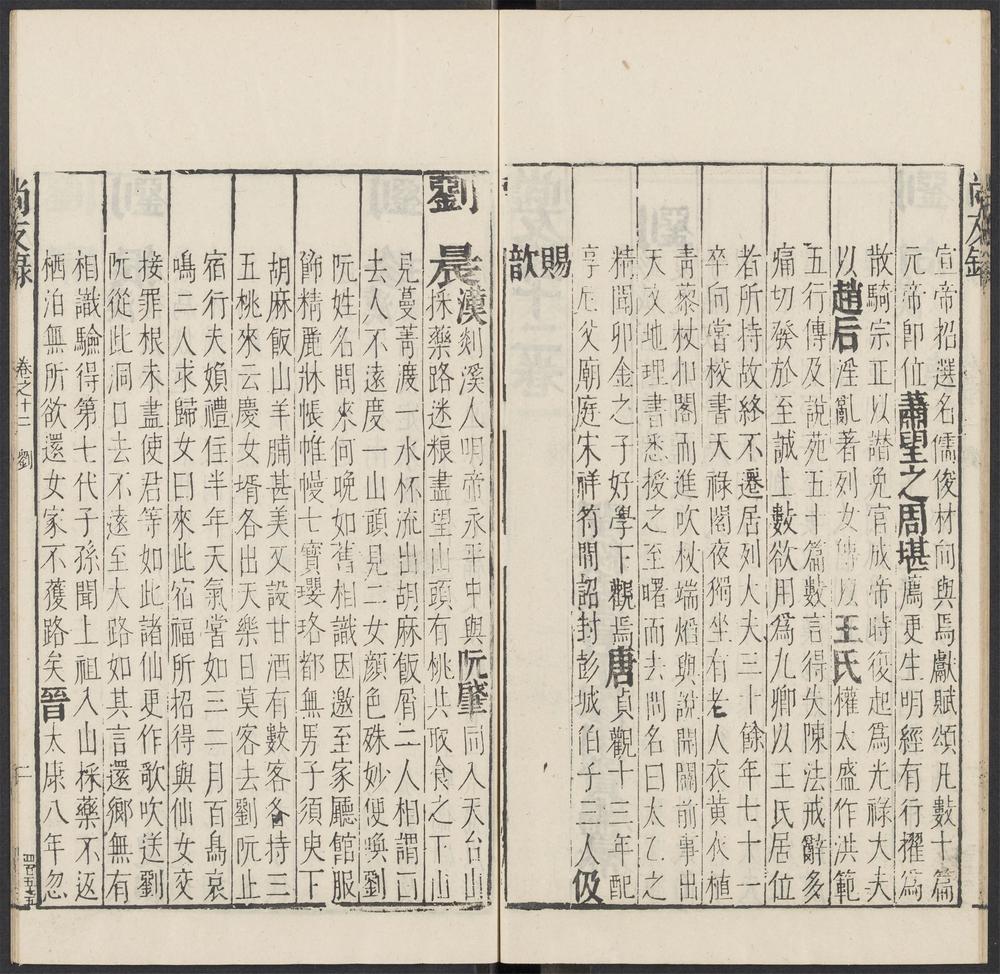 尚友錄
宣帝招選名儒俊材向與焉獻賦頌凡數十篇
元帝卽位蕭望之周堪薦更生明經有行擢爲
散騎宗正以譖免官成帝時復起爲光祿大夫
以趙后淫亂著列女傳以王氏權太盛作洪範
五行傳及說苑五十篇數言得失陳法戒辭多
痛切發於至誠上數欲用爲九卿以王氏居位
者所持故終不遷居列大夫三十餘年七十一
卒向嘗校書天祿閣夜獨坐有老人衣黄衣植
靑藜杖扣閣而進吹杖端㷔與說開闢前事出
天文地理書悉授之至曙而去問名曰太乙之
精聞卯金之子好學下觀焉唐貞觀十三年配
享尼父廟庭宋祥符間詔封彭城伯子三人伋
賜
歆
劉晨漢剡溪人明帝永平中與阮肇同入天台山
採藥路迷粮盡望山頭有桃共取食之下山
見蔓菁渡一水杯流出胡麻飯屑二人相謂曰
去人不遠度一山頭見二女顏色殊妙便喚劉
阮姓名問來何晚如舊相識因邀至家廳館服
飾精麗牀帳帷幔七寶瓔珞都無男子須臾下
胡麻飯山羊脯甚美又設甘酒有數客各持三
五桃來云慶女壻各出天樂日莫客去劉阮止
宿行夫婦禮住半年天氣嘗如三二月百鳥哀
鳴二人求歸女曰來此宿福所招得與仙女交
接罪根未盡使君等如此諸仙更作歌吹送劉
阮從此洞口去不遠至大路如其言還鄉無有
相識驗得第七代子孫聞上祖入山採藥不返
栖泊無所欲還女家不獲路矣晉太康八年忽
尚友錄
卷之十二
劉
二
四百五十五